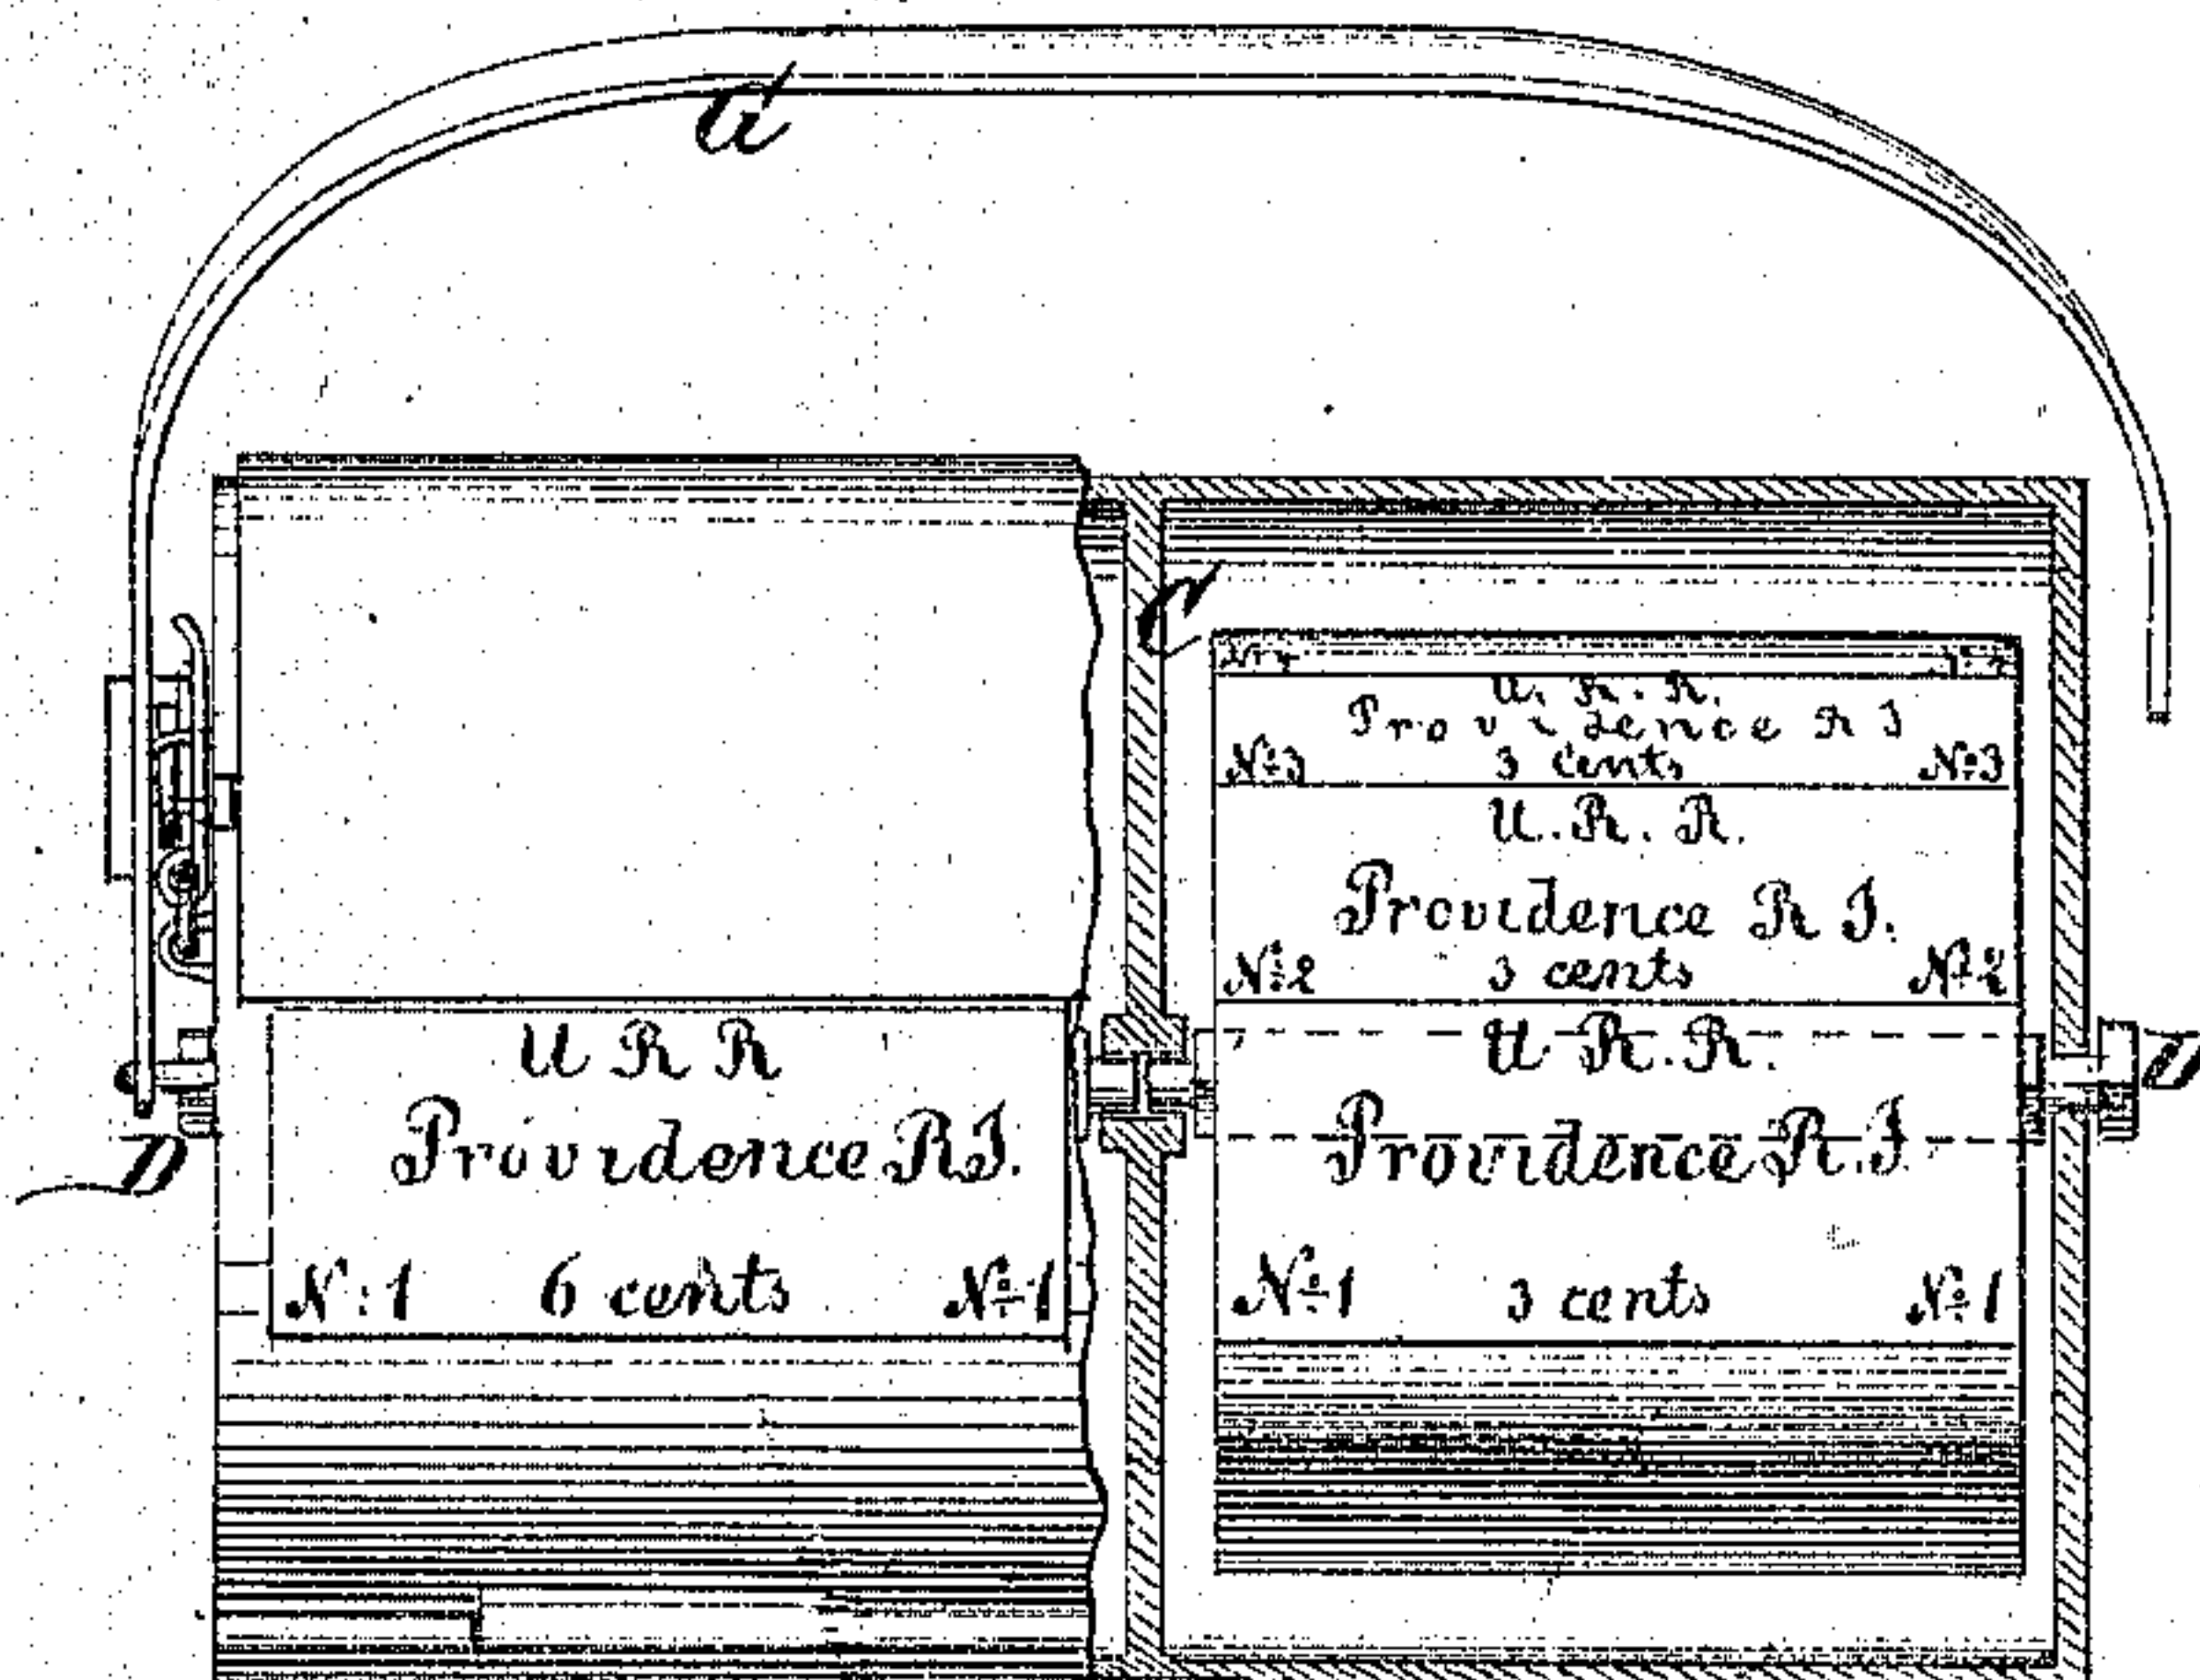 C
U. R. R.
Providence R I
No 3 3 cents No 3
U. R. R.
Providence R I.
No 2 3 cents No 2
U R R
Providence R I.
No 1 6 cents No 1
U. R. R.
Providence R. I
No 1 3 cents No 1
D
D